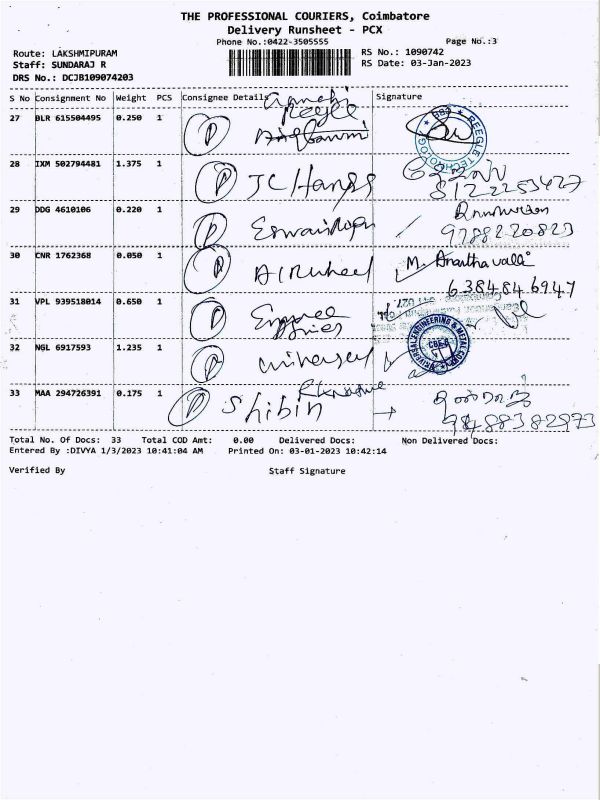 THE PROFESSIONAL COURIERS, Coimbatore
Delivery Runsheet - PCX
Phone No.:0422-3505555 Page No.:3
Route: LAKSHMIPURAM RS No.: 1090742
Staff: SUNDARAJ R RS Date: 03-Jan-2023
DRS No.: DCJB109074203
S No Consignment No Weight PCS Consignee Details Signature
27 BLR 615504495 0.250 1 Reegle
REEGLE
28 IXM 502794481 1.375 1 P JC Hangs
8122253427
29 DDG 4610106 0.220 1 P
9788220823
30 CNR 1762368 0.050 1 P M. Ananthavalli
6384846947
31 VPL 939518014 0.650 1 P
32 NGL 6917593 1.235 1 P universal
UNIVERSAL ENGINEERING & METAL CORP CBE-6
33 MAA 294726391 0.175 1 P Shibin
9488382973
Total No. Of Docs: 33 Total COD Amt: 0.00 Delivered Docs: Non Delivered Docs:
Entered By :DIVYA 1/3/2023 10:41:04 AM Printed On: 03-01-2023 10:42:14
Verified By Staff Signature